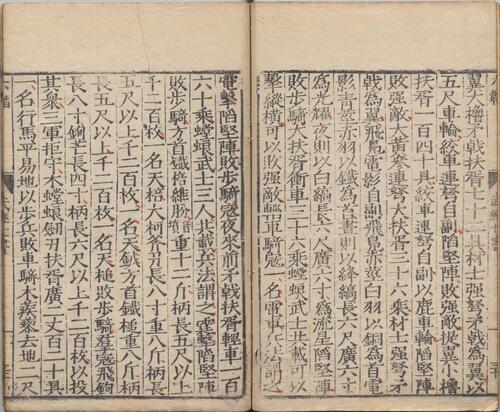 翼大櫓矛戟扶胥七十二具材士強弩矛戟爲翼以
五尺車輪絞車連弩自副陷堅陣敗強敵提翼小櫓
扶胥一百四十具絞車連弩自副以鹿車輪陷堅陣
敗強敵大黃叅連弩大扶胥三十六乘材士強弩矛
戟爲翼飛鳧電影自副飛鳧赤莖白羽以銅爲首電
影青莖赤羽以鐵爲首晝則以絳縞長六尺廣六寸
爲光耀夜則以白縞長六尺廣六寸爲流星陷堅陣
敗步騎大扶胥衝車三十六乘螳蜋武士共載可以
擊縱橫可以敗強敵輜車騎寇一名電車兵法謂之
電擊陷堅陣敗步騎寇夜來前矛戟扶胥輕車一百
六十乘螳蜋武士三人共載兵法謂之霆擊陷堅陣
敗步騎方首鐵棓維肦重十二斤柄長五尺以上
千二百枚一名天棓大柯斧刃長八寸重八斤柄長
五尺以上千二百枚一名天鉞方首鐵槌重八斤柄
長五尺以上千二百枚一名天槌敗步騎羣寇飛鉤
長八寸鉤芒長四寸柄長六尺以上千二百枚以投
其衆三軍拒守木螳蜋劒刃扶胥廣二丈百二十具
一名行馬平易地以步兵敗車騎木蒺藜去地二尺